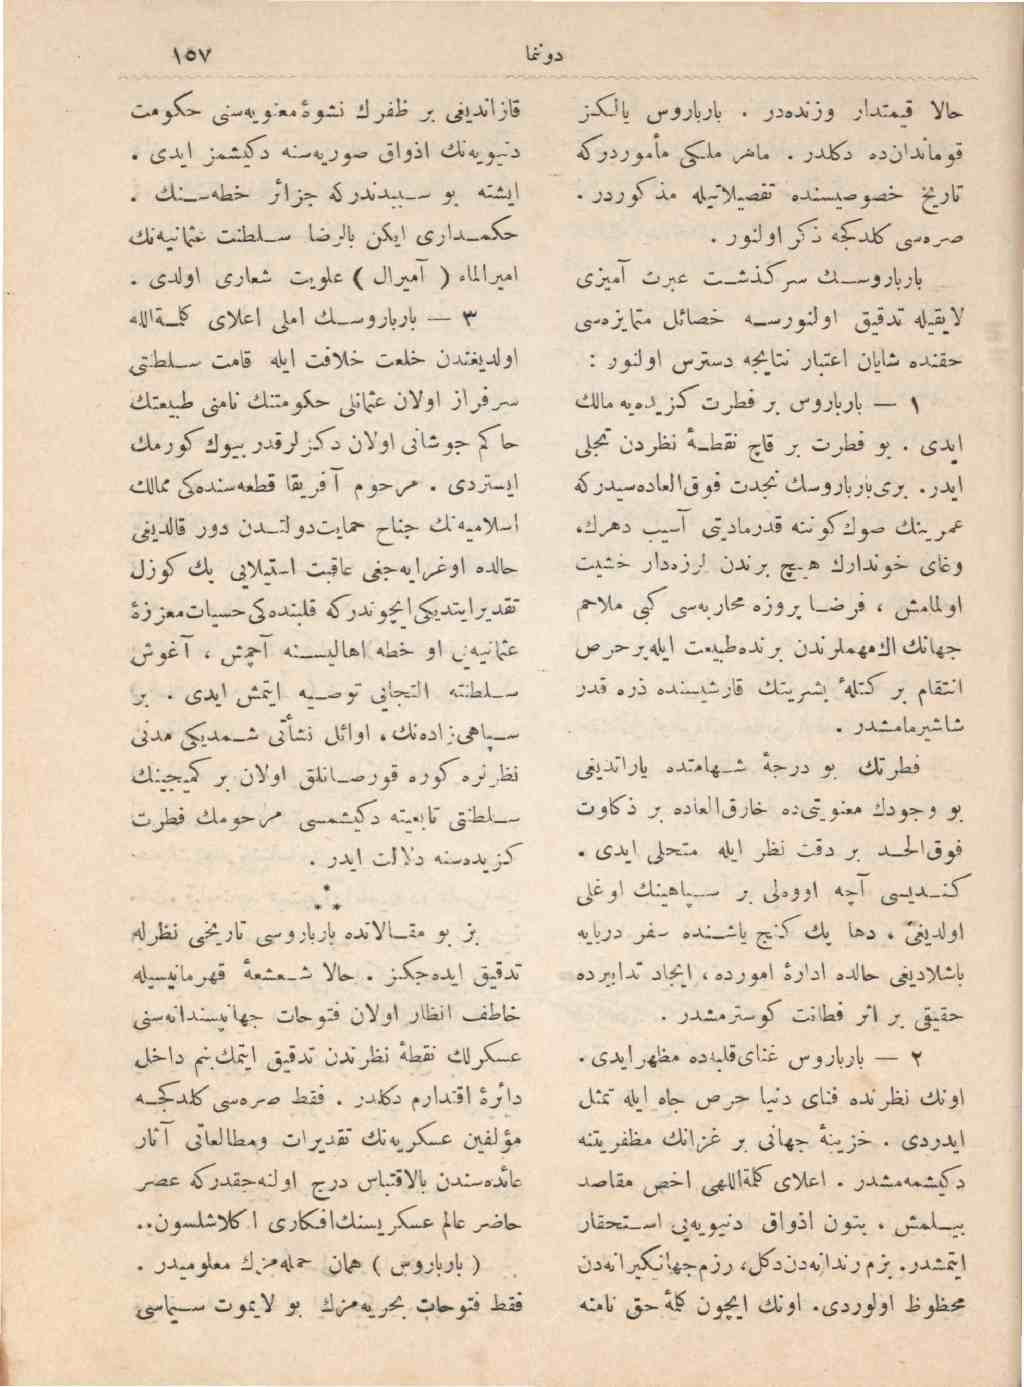 دوننما
١٥٧
حالا قيمتدار وزنده‌در . بارباروس يالكز
قومانداندن‌ده دكلدر . ماهر ملكی مأموردركه
تاريخ خصوصيسنده تفصيلاتيله مذكوردر .
صره‌سی كلدكجه ذكر اولنور .
بارباروســك سركذشــت عبرت آميزی
لايقيله تدقيق اولنورســه خصائل متمايزه‌سی
حقنده شايان اعتبار نتايجه دسترس اولنور :
١ — بارباروس بر فطرت كزيده‌يه مالك
ايدی . بو فطرت بر قاچ نقطــهٔ نظردن تجلی
ايدر. بری‌بارباروسك نجدت فوق‌العاده‌سيدركه
عمرينك صوك‌كوننه قدرمادیتی آسيب دهرك،
وغای خوندارك هيچ برندن لرزه‌دار خشيت
اولمامش ، فرضــا پروزه محاربه‌سی كبی ملاحم
جهانك اك‌مهملرندن برنده‌طبيعت ايله‌برحرص
انتقام بر كتلهٔ بشريتك قارشيسنده ذره قدر
شاشيرمامشدر .
فطرتك بو درجهٔ شــهامتده ياراتديغی
بو وجودك معنويتی‌ده خارق‌العاده بر ذكاوت
فوق‌الحــد بر دقت نظر ايله متحلی ايدی .
كنــديسی آچه اووه‌لی بر ســپاهينك اوغلی
اولديغی ، دها پك كنج ياشــنده سفر دريايه
باشلاديغی حالده ادارهٔ امورده، ايجاد تدابيرده
حقيقی بر اثر فطانت كوسترمشدر .
٢ — بارباروس غنای‌قلبه‌ده مظهرايدی.
اونك نظرنده فنای دنيا حرص جاه ايله تمثل
ايدردی . خزينهٔ جهانی بر غزانك مظفريتنه
دكيشمه‌مشدر . اعلای كلمةاللهی اخص مقاصد
بيــلمش ، بتون اذواق دنيويه‌يی اســتحقار
ايتمشدر. بزم رندانه‌دن‌دكل، رزم‌جهانكيرانه‌دن
محظوظ اولوردی. اونك ايچون كلمهٔ حق نامنه
قازانديغی بر ظفرك نشوهٔ معنويه‌سنی حكومت
دنيويه‌نك اذواق صوريه‌سنه دكيشمز ايدی .
ايشته بو ســببدندركه جزائر خطه‌ســنك .
حكمــداری ايكن بالرضا ســلطنت عثمانيه‌نك
اميرالماء ( آميرال ) علويت شعاری اولدی .
٣ — بارباروســك املی اعلای كلمــةالله
اولديغندن خلعت خلافت ايله قامت ســلطنتی
سرفراز اولان عثمانلی حكومتنك نامنی طبيعتك
حاكم جوشانی اولان دكزلرقدر بيوك كورمك
ايستردی . مرحوم آفريقا قطعه‌سنده‌كی ممالك
اسلاميه‌نك جناح حمايت‌دولتــدن دور قالديغی
حالده اوغرايه‌جغی عاقبت استيلايی پك كوزل
تقديرايتديكی‌ايچوندركه قلبنده‌كی‌حسيات‌معززهٔ
عثمانيه‌يی او خطه اهاليســنه آچمش ، آغوش
ســلطنته التجايی توصــيه ايتمش ايدی . بر
ســپاهی‌زاده‌نك، اوائل نشأتی شــمديكی مدنی
نظرلره كوره قورصــانلق اولان بر كميجينك
ســلطنتی تابعيته دكيشمسی مرحومك فطرت
كزيده‌سنه دلالت ايدر .
* * *
بز بو مقــالاتده بارباروسی تاريخی نظرله
تدقيق ايده‌جكز . حالا شــعشعهٔ قهرمانيسيله
خاطف انظار اولان فتوحات جهانپسندانه‌سنی
عسكرلك نقطهٔ نظرندن تدقيق ايتمك‌بنم داخل
دائرهٔ اقتدارم دكلدر . فقط صره‌سی كلدكجــه
مؤلفين عسكريه‌نك تقديرات ومطالعاتی آثار
عائده‌سندن بالاقتباس درج اولنه‌جقدركه عصر
حاضر عالم عسكريسنك‌افكاری اكلاشلسون..
( بارباروس ) همان جمله‌مزك معلوميدر .
فقط فتوحات بحريه‌مزك بو لايموت ســيماسی